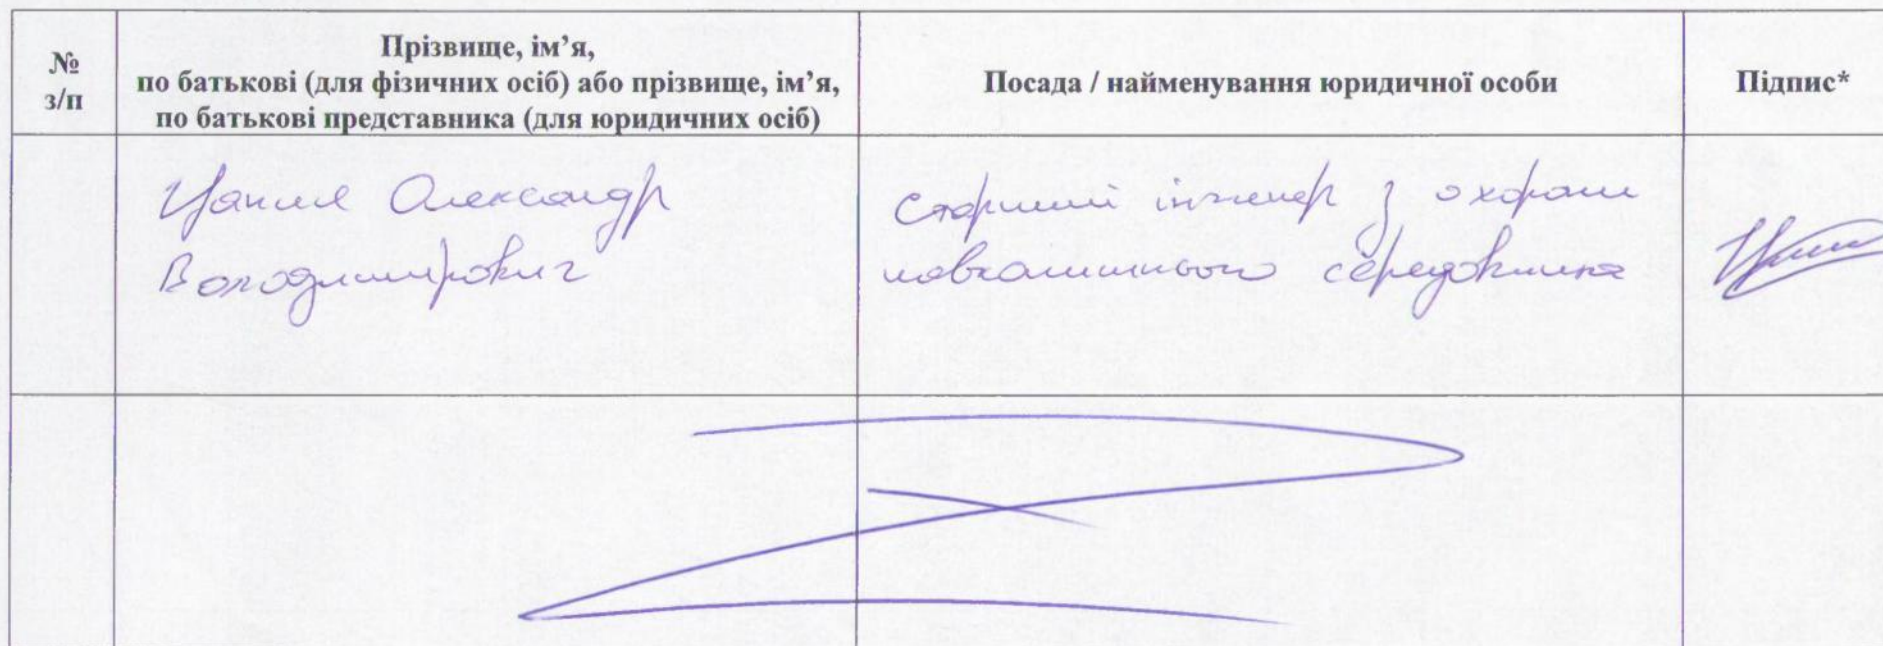 №
з/п
Прізвище, ім’я,
по батькові (для фізичних осіб) або прізвище, ім’я,
по батькові представника (для юридичних осіб)
Посада / найменування юридичної особи
Підпис*
Олександр
Володимирович
Старший інженер з охорони
навколишнього середовища